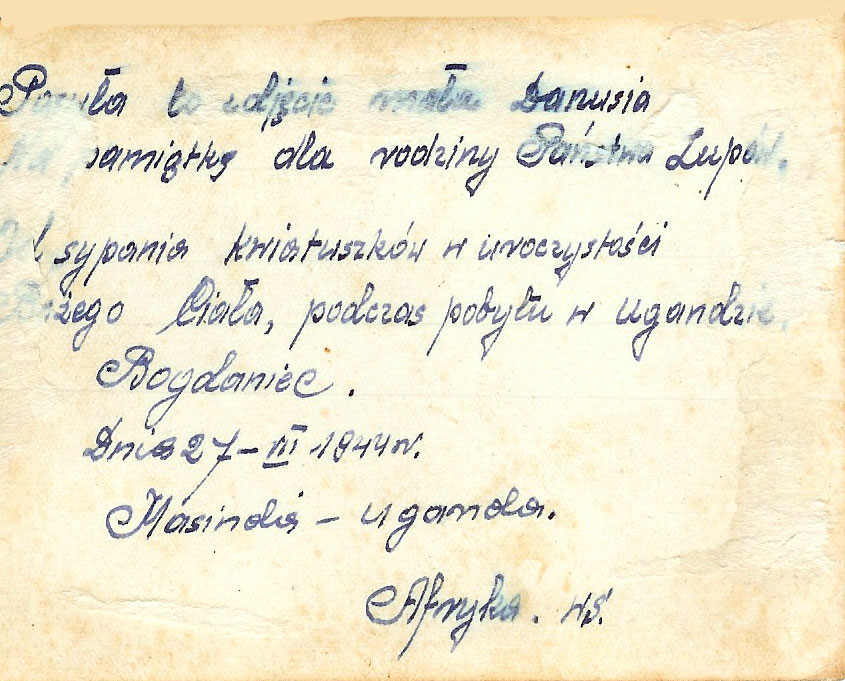 to zdjęcie mała Danusia
pamiątkę dla rodziny Państwa Lupów.
Od sypania kwiatuszków w uroczystości
Bożego Ciała, podczas pobytu w Ugandzie.
Bogdaniec.
Dnia 27-III 1944r.
Masindia - Uganda.
Afryka. wś.